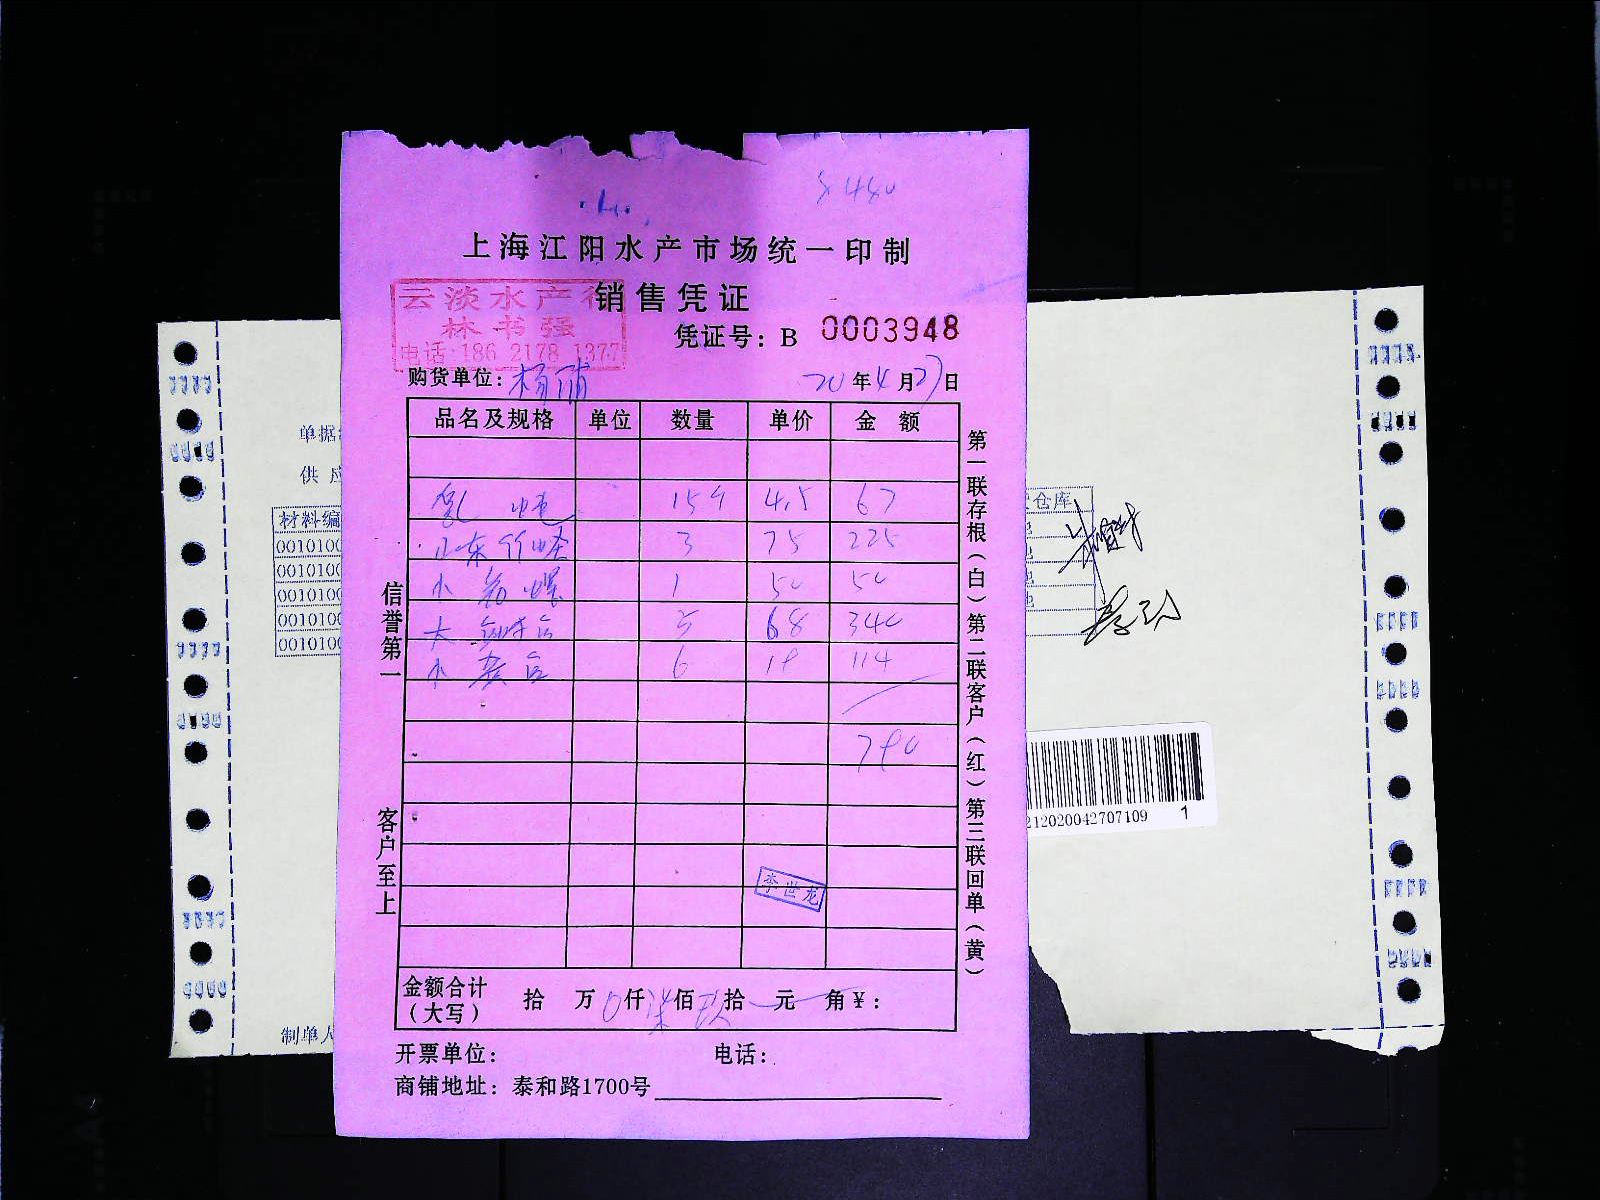 上海江阳水产市场统一印制
云淡水产行
销售凭证
林书强
凭证号：B 0003948
电话:186 2178 1377
购货单位：杨浦 20年4月27日
品名及规格 单位 数量 单价 金额
4.5 67
山东竹蛏 3 75 225
小 螺 1 50 50
大 5 68 340
小 6 19 114
790
李世龙
金额合计（大写） 拾 万 0仟柒佰玖拾 元 角¥：
开票单位： 电话：
商铺地址：泰和路1700号
信誉第一
客户至上
第一联存根（白）第二联客户（红）第三联回单（黄）
单据
供应
材料编
0010100
0010100
0010100
0010100
0010100
制单人
仓库
212020042707109 1